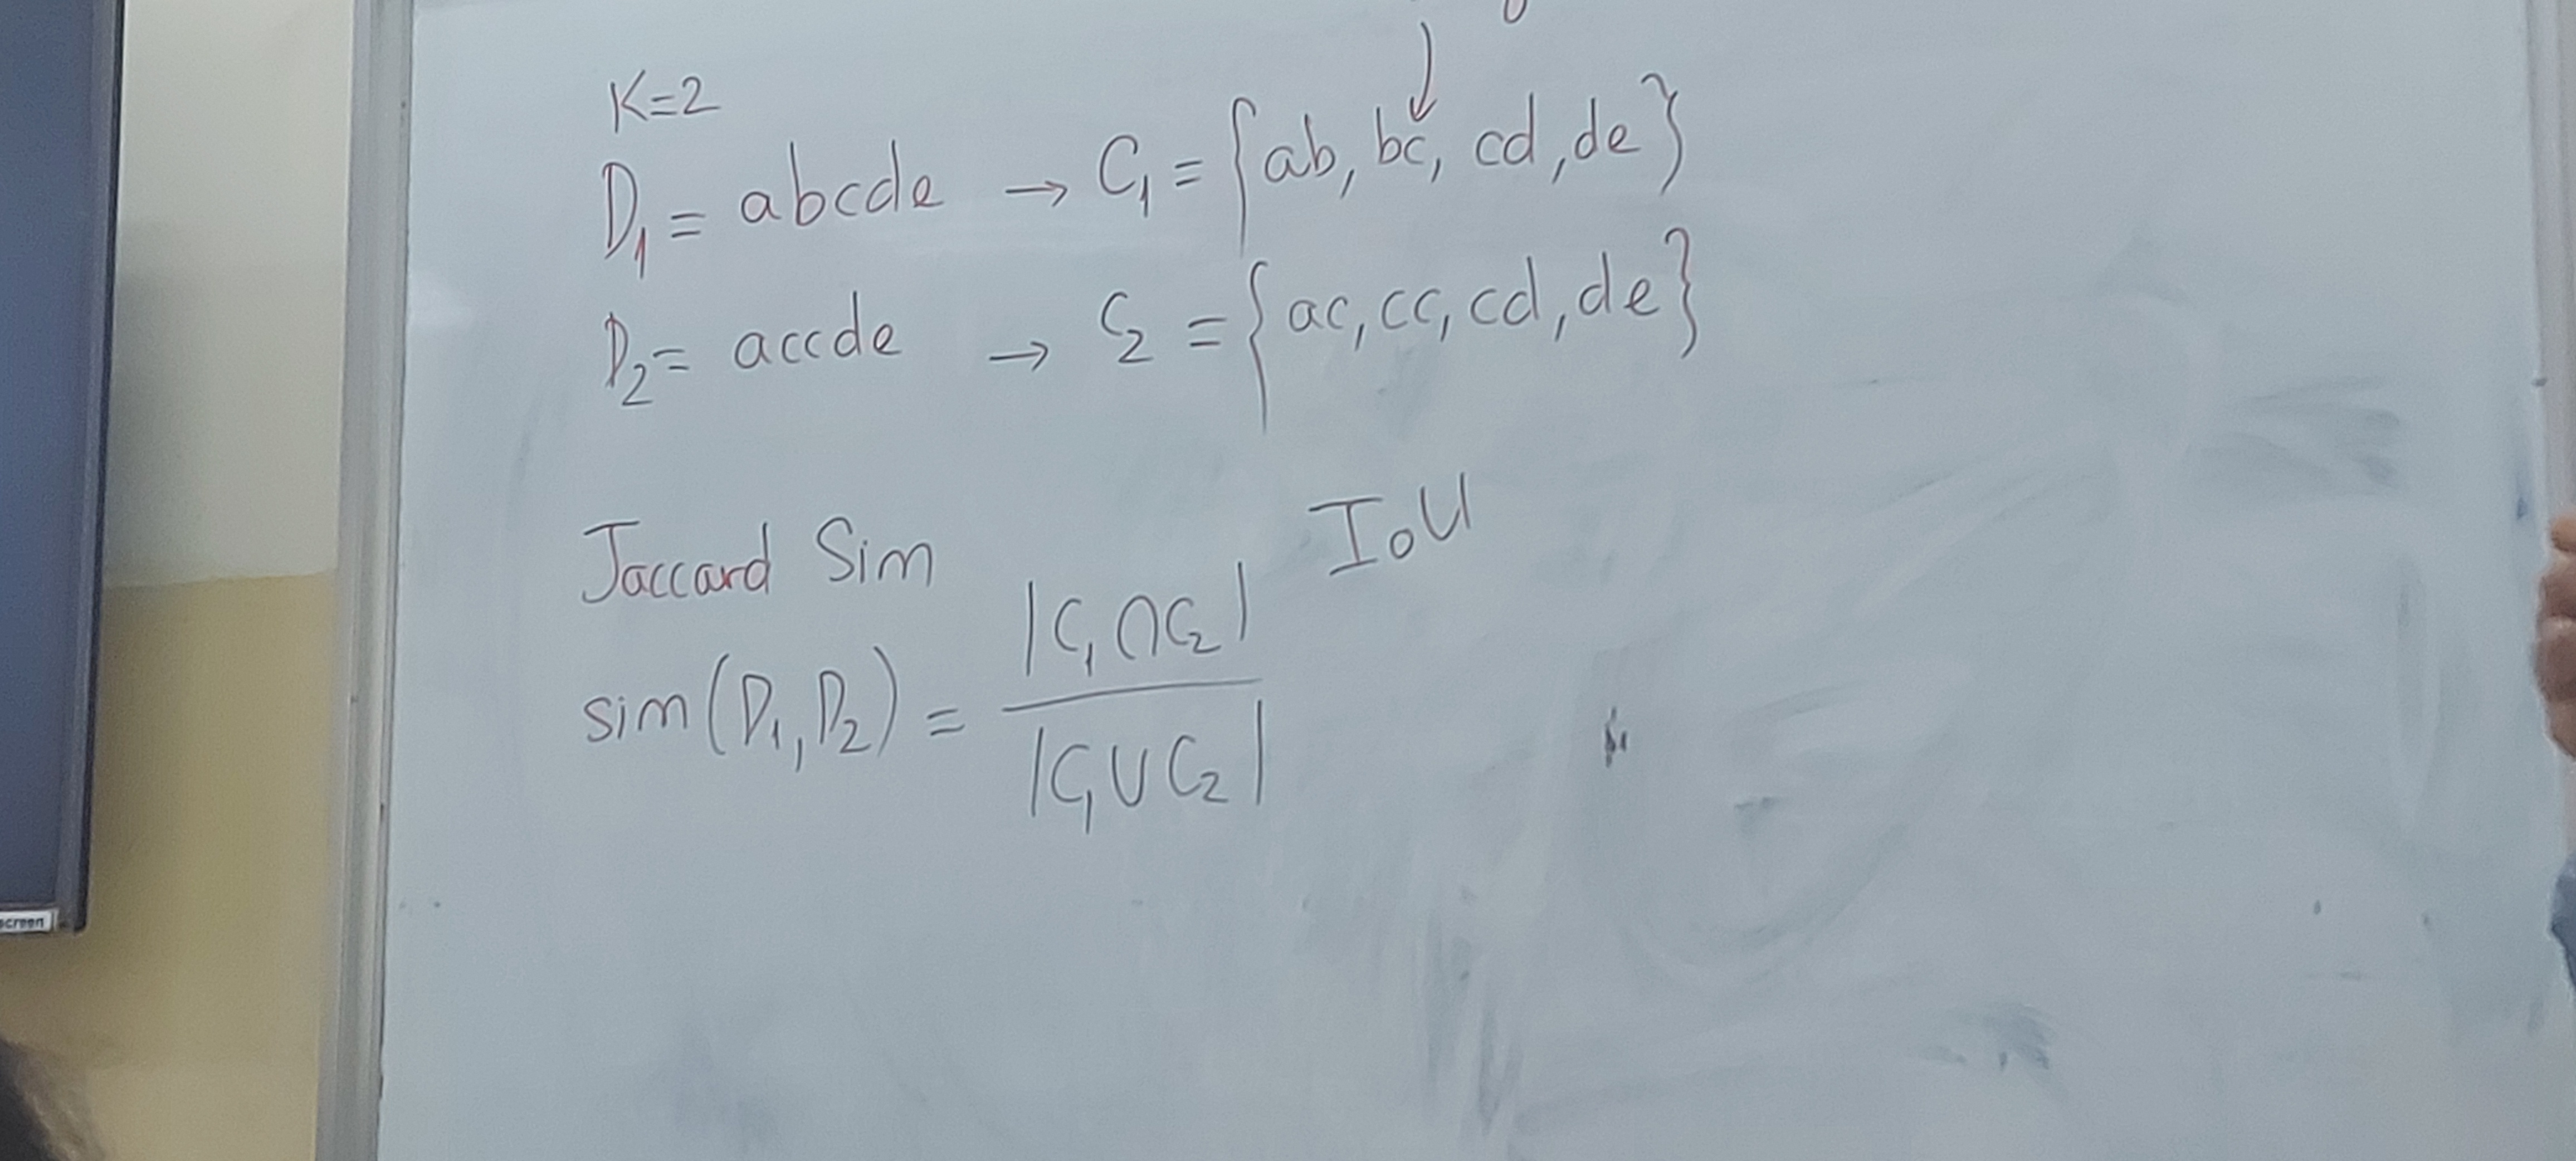 K=2
D₁ = abcde → C₁ = {ab, bc, cd, de}
D₂ = accde → C₂ = {ac, cc, cd, de}
Jaccard Sim IoU
sim(D₁, D₂) = |C₁∩C₂|
|C₁∪C₂|
screen